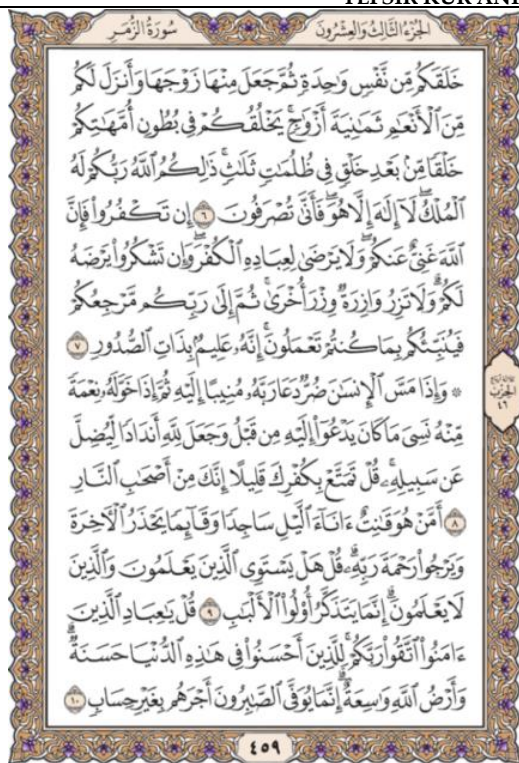 سُورَةُ الزُّمَرِ
الجُزْءُ الثَّالِثُ وَالعِشْرُونَ
خَلَقَكُم مِّن نَّفْسٍ وَٰحِدَةٍ ثُمَّ جَعَلَ مِنْهَا زَوْجَهَا وَأَنزَلَ لَكُم
مِّنَ ٱلْأَنْعَٰمِ ثَمَٰنِيَةَ أَزْوَٰجٍۚ يَخْلُقُكُمْ فِى بُطُونِ أُمَّهَٰتِكُمْ
خَلْقًا مِّنۢ بَعْدِ خَلْقٍ فِى ظُلُمَٰتٍ ثَلَٰثٍۚ ذَٰلِكُمُ ٱللَّهُ رَبُّكُمْ لَهُ
ٱلْمُلْكُۖ لَآ إِلَٰهَ إِلَّا هُوَۖ فَأَنَّىٰ تُصْرَفُونَ ٦ إِن تَكْفُرُوا۟ فَإِنَّ
ٱللَّهَ غَنِىٌّ عَنكُمْۖ وَلَا يَرْضَىٰ لِعِبَادِهِ ٱلْكُفْرَۖ وَإِن تَشْكُرُوا۟ يَرْضَهُ
لَكُمْۗ وَلَا تَزِرُ وَازِرَةٌ وِزْرَ أُخْرَىٰۚ ثُمَّ إِلَىٰ رَبِّكُم مَّرْجِعُكُمْ
فَيُنَبِّئُكُم بِمَا كُنتُمْ تَعْمَلُونَۚ إِنَّهُۥ عَلِيمٌۢ بِذَاتِ ٱلصُّدُورِ ٧
۞ وَإِذَا مَسَّ ٱلْإِنسَٰنَ ضُرٌّ دَعَا رَبَّهُۥ مُنِيبًا إِلَيْهِ ثُمَّ إِذَا خَوَّلَهُۥ نِعْمَةً
مِّنْهُ نَسِىَ مَا كَانَ يَدْعُوٓا۟ إِلَيْهِ مِن قَبْلُ وَجَعَلَ لِلَّهِ أَندَادًا لِّيُضِلَّ
عَن سَبِيلِهِۦۚ قُلْ تَمَتَّعْ بِكُفْرِكَ قَلِيلًاۖ إِنَّكَ مِنْ أَصْحَٰبِ ٱلنَّارِ
٨ أَمَّنْ هُوَ قَٰنِتٌ ءَانَآءَ ٱلَّيْلِ سَاجِدًا وَقَآئِمًا يَحْذَرُ ٱلْءَاخِرَةَ
وَيَرْجُوا۟ رَحْمَةَ رَبِّهِۦۗ قُلْ هَلْ يَسْتَوِى ٱلَّذِينَ يَعْلَمُونَ وَٱلَّذِينَ
لَا يَعْلَمُونَۗ إِنَّمَا يَتَذَكَّرُ أُو۟لُوا۟ ٱلْأَلْبَٰبِ ٩ قُلْ يَٰعِبَادِ ٱلَّذِينَ
ءَامَنُوا۟ ٱتَّقُوا۟ رَبَّكُمْۚ لِلَّذِينَ أَحْسَنُوا۟ فِى هَٰذِهِ ٱلدُّنْيَا حَسَنَةٌۗ
وَأَرْضُ ٱللَّهِ وَٰسِعَةٌۗ إِنَّمَا يُوَفَّى ٱلصَّٰبِرُونَ أَجْرَهُم بِغَيْرِ حِسَابٍ ١٠
٤٥٩